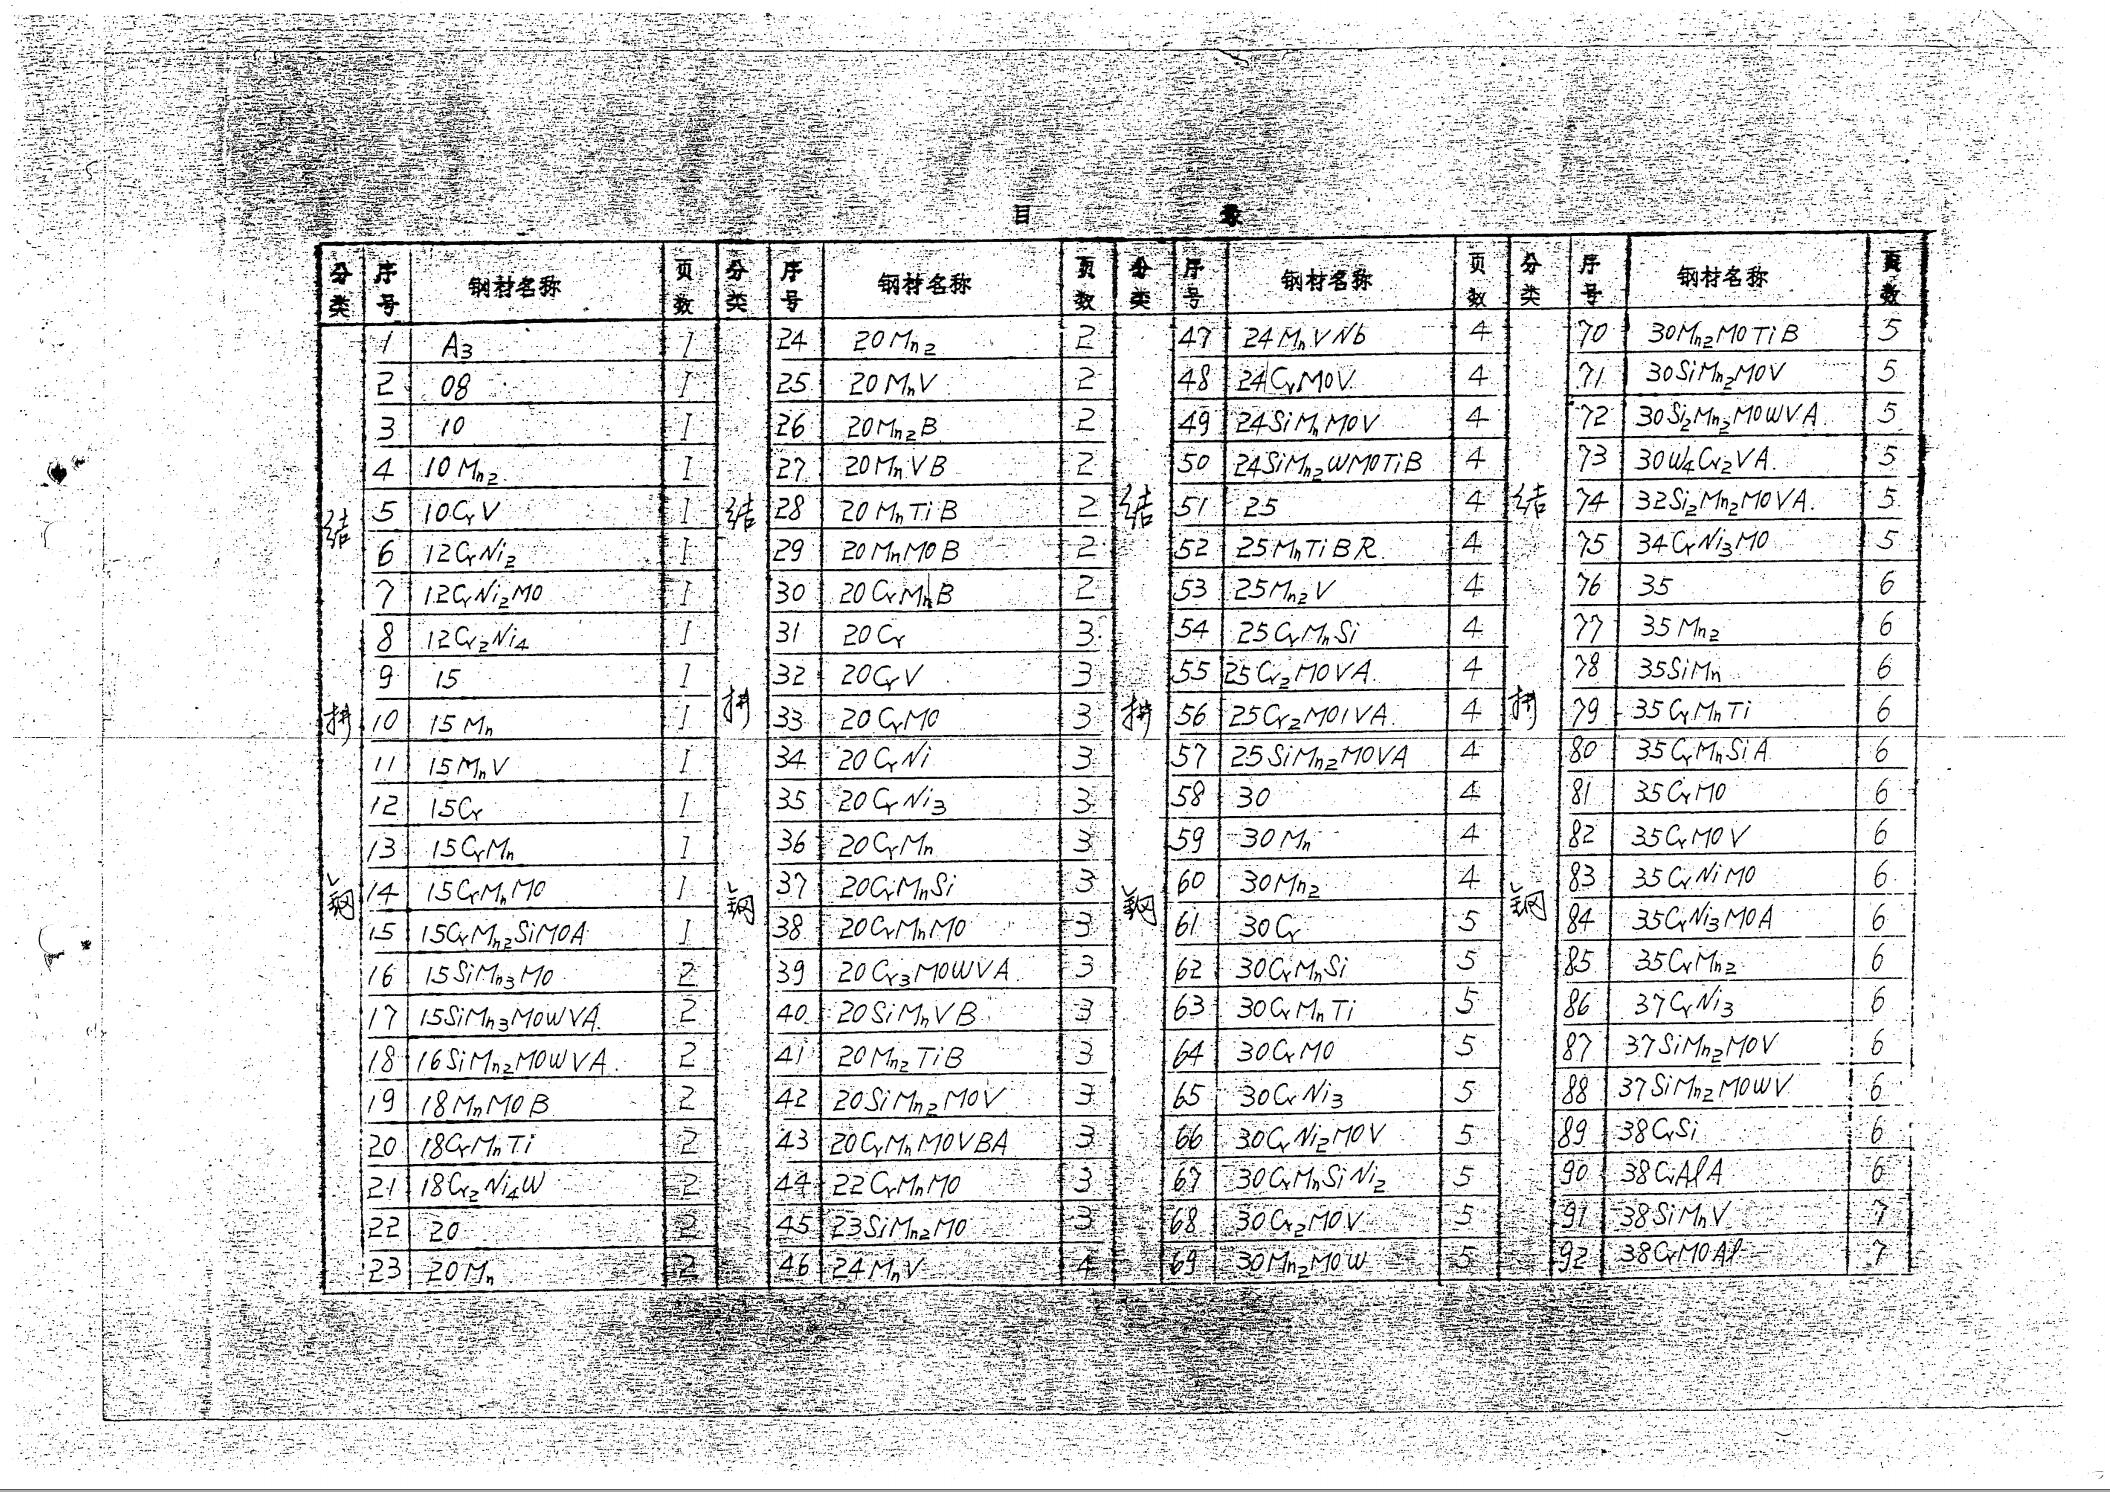 目 录
分类 序号 钢材名称 页数
结构钢
1 A3 1
2 08 1
3 10 1
4 10Mn2 1
5 10CrV 1
6 12CrNi2 1
7 12CrNi2MO 1
8 12Cr2Ni4 1
9 15 1
10 15Mn 1
11 15MnV 1
12 15Cr 1
13 15CrMn 1
14 15CrMnMO 1
15 15CrMn2SiMOA 1
16 15SiMn3MO 2
17 15SiMn3MOWVA 2
18 16SiMn2MOWVA 2
19 18MnMOB 2
20 18CrMnTi 2
21 18Cr2Ni4W 2
22 20 2
23 20Mn 2
分类 序号 钢材名称 页数
结构钢
24 20Mn2 2
25 20MnV 2
26 20Mn2B 2
27 20MnVB 2
28 20MnTiB 2
29 20MnMOB 2
30 20CrMnB 2
31 20Cr 3
32 20CrV 3
33 20CrMO 3
34 20CrNi 3
35 20CrNi3 3
36 20CrMn 3
37 20CrMnSi 3
38 20CrMnMO 3
39 20Cr3MOWVA 3
40 20SiMnVB 3
41 20Mn2TiB 3
42 20SiMn2MOV 3
43 20CrMnMOVBA 3
44 22CrMnMO 3
45 23SiMn2MO 3
46 24MnV 4
分类 序号 钢材名称 页数
结构钢
47 24MnVNb 4
48 24CrMOV 4
49 24SiMnMOV 4
50 24SiMn2WMOTiB 4
51 25 4
52 25MnTiBR 4
53 25Mn2V 4
54 25CrMnSi 4
55 25Cr2MOVA 4
56 25Cr2MO1VA 4
57 25SiMn2MOVA 4
58 30 4
59 30Mn 4
60 30Mn2 4
61 30Cr 5
62 30CrMnSi 5
63 30CrMnTi 5
64 30CrMO 5
65 30CrNi3 5
66 30CrNi2MOV 5
67 30CrMnSiNi2 5
68 30Cr2MOV 5
69 30Mn2MOW 5
分类 序号 钢材名称 页数
结构钢
70 30Mn2MOTiB 5
71 30SiMn2MOV 5
72 30Si2Mn2MOWVA 5
73 30W4Cr2VA 5
74 32Si2Mn2MOVA 5
75 34CrNi3MO 5
76 35 6
77 35Mn2 6
78 35SiMn 6
79 35CrMnTi 6
80 35CrMnSiA 6
81 35CrMO 6
82 35CrMOV 6
83 35CrNiMO 6
84 35CrNi3MOA 6
85 35CrMn2 6
86 37CrNi3 6
87 37SiMn2MOV 6
88 37SiMn2MOWV 6
89 38CrSi 6
90 38CrAlA 6
91 38SiMnV 7
92 38CrMOAl 7